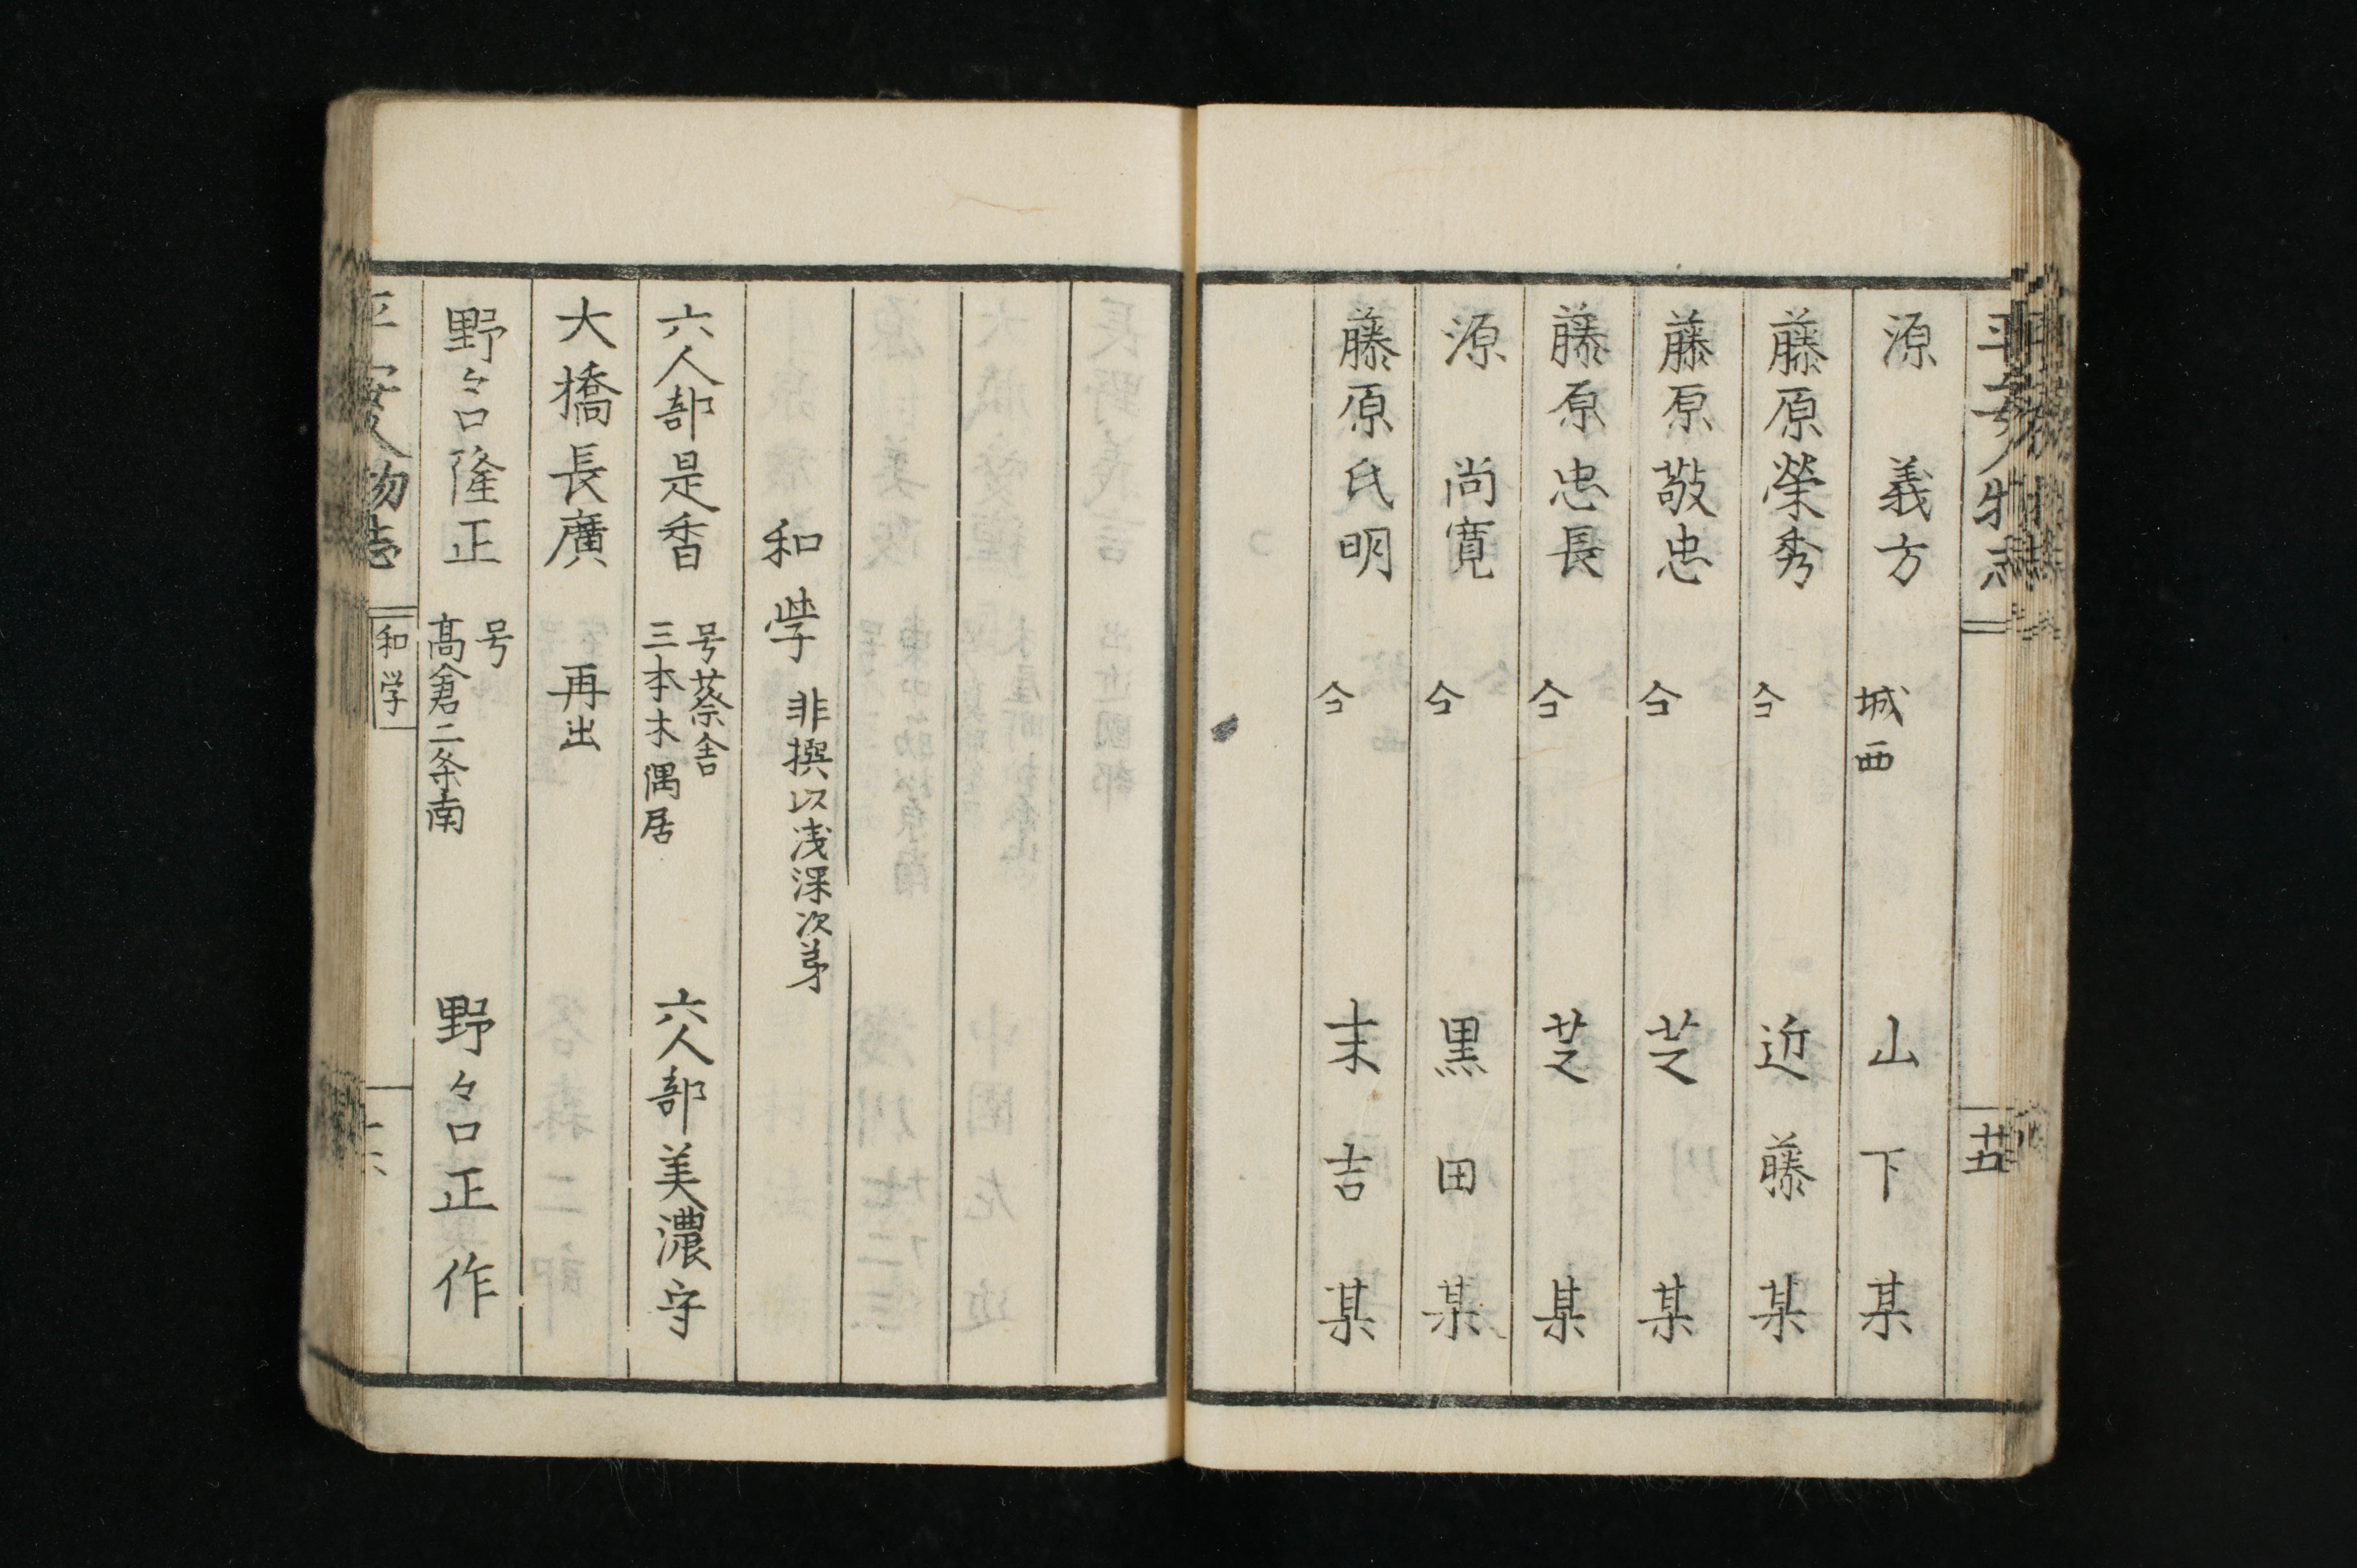 源 義方 城西 山下某
藤原榮秀 仝 近藤某
藤原敬忠 仝 芝某
藤原忠長 仝 芝某
源 尚寛 仝 黒田某
藤原氏明 仝 末吉某
和学 非撰以浅深次第
六人部是香 号葵舎 三本木偶居 六人部美濃守
大橋長廣 再出
野々口隆正 号 高倉二条南 野々口正作
平安人物志
和学